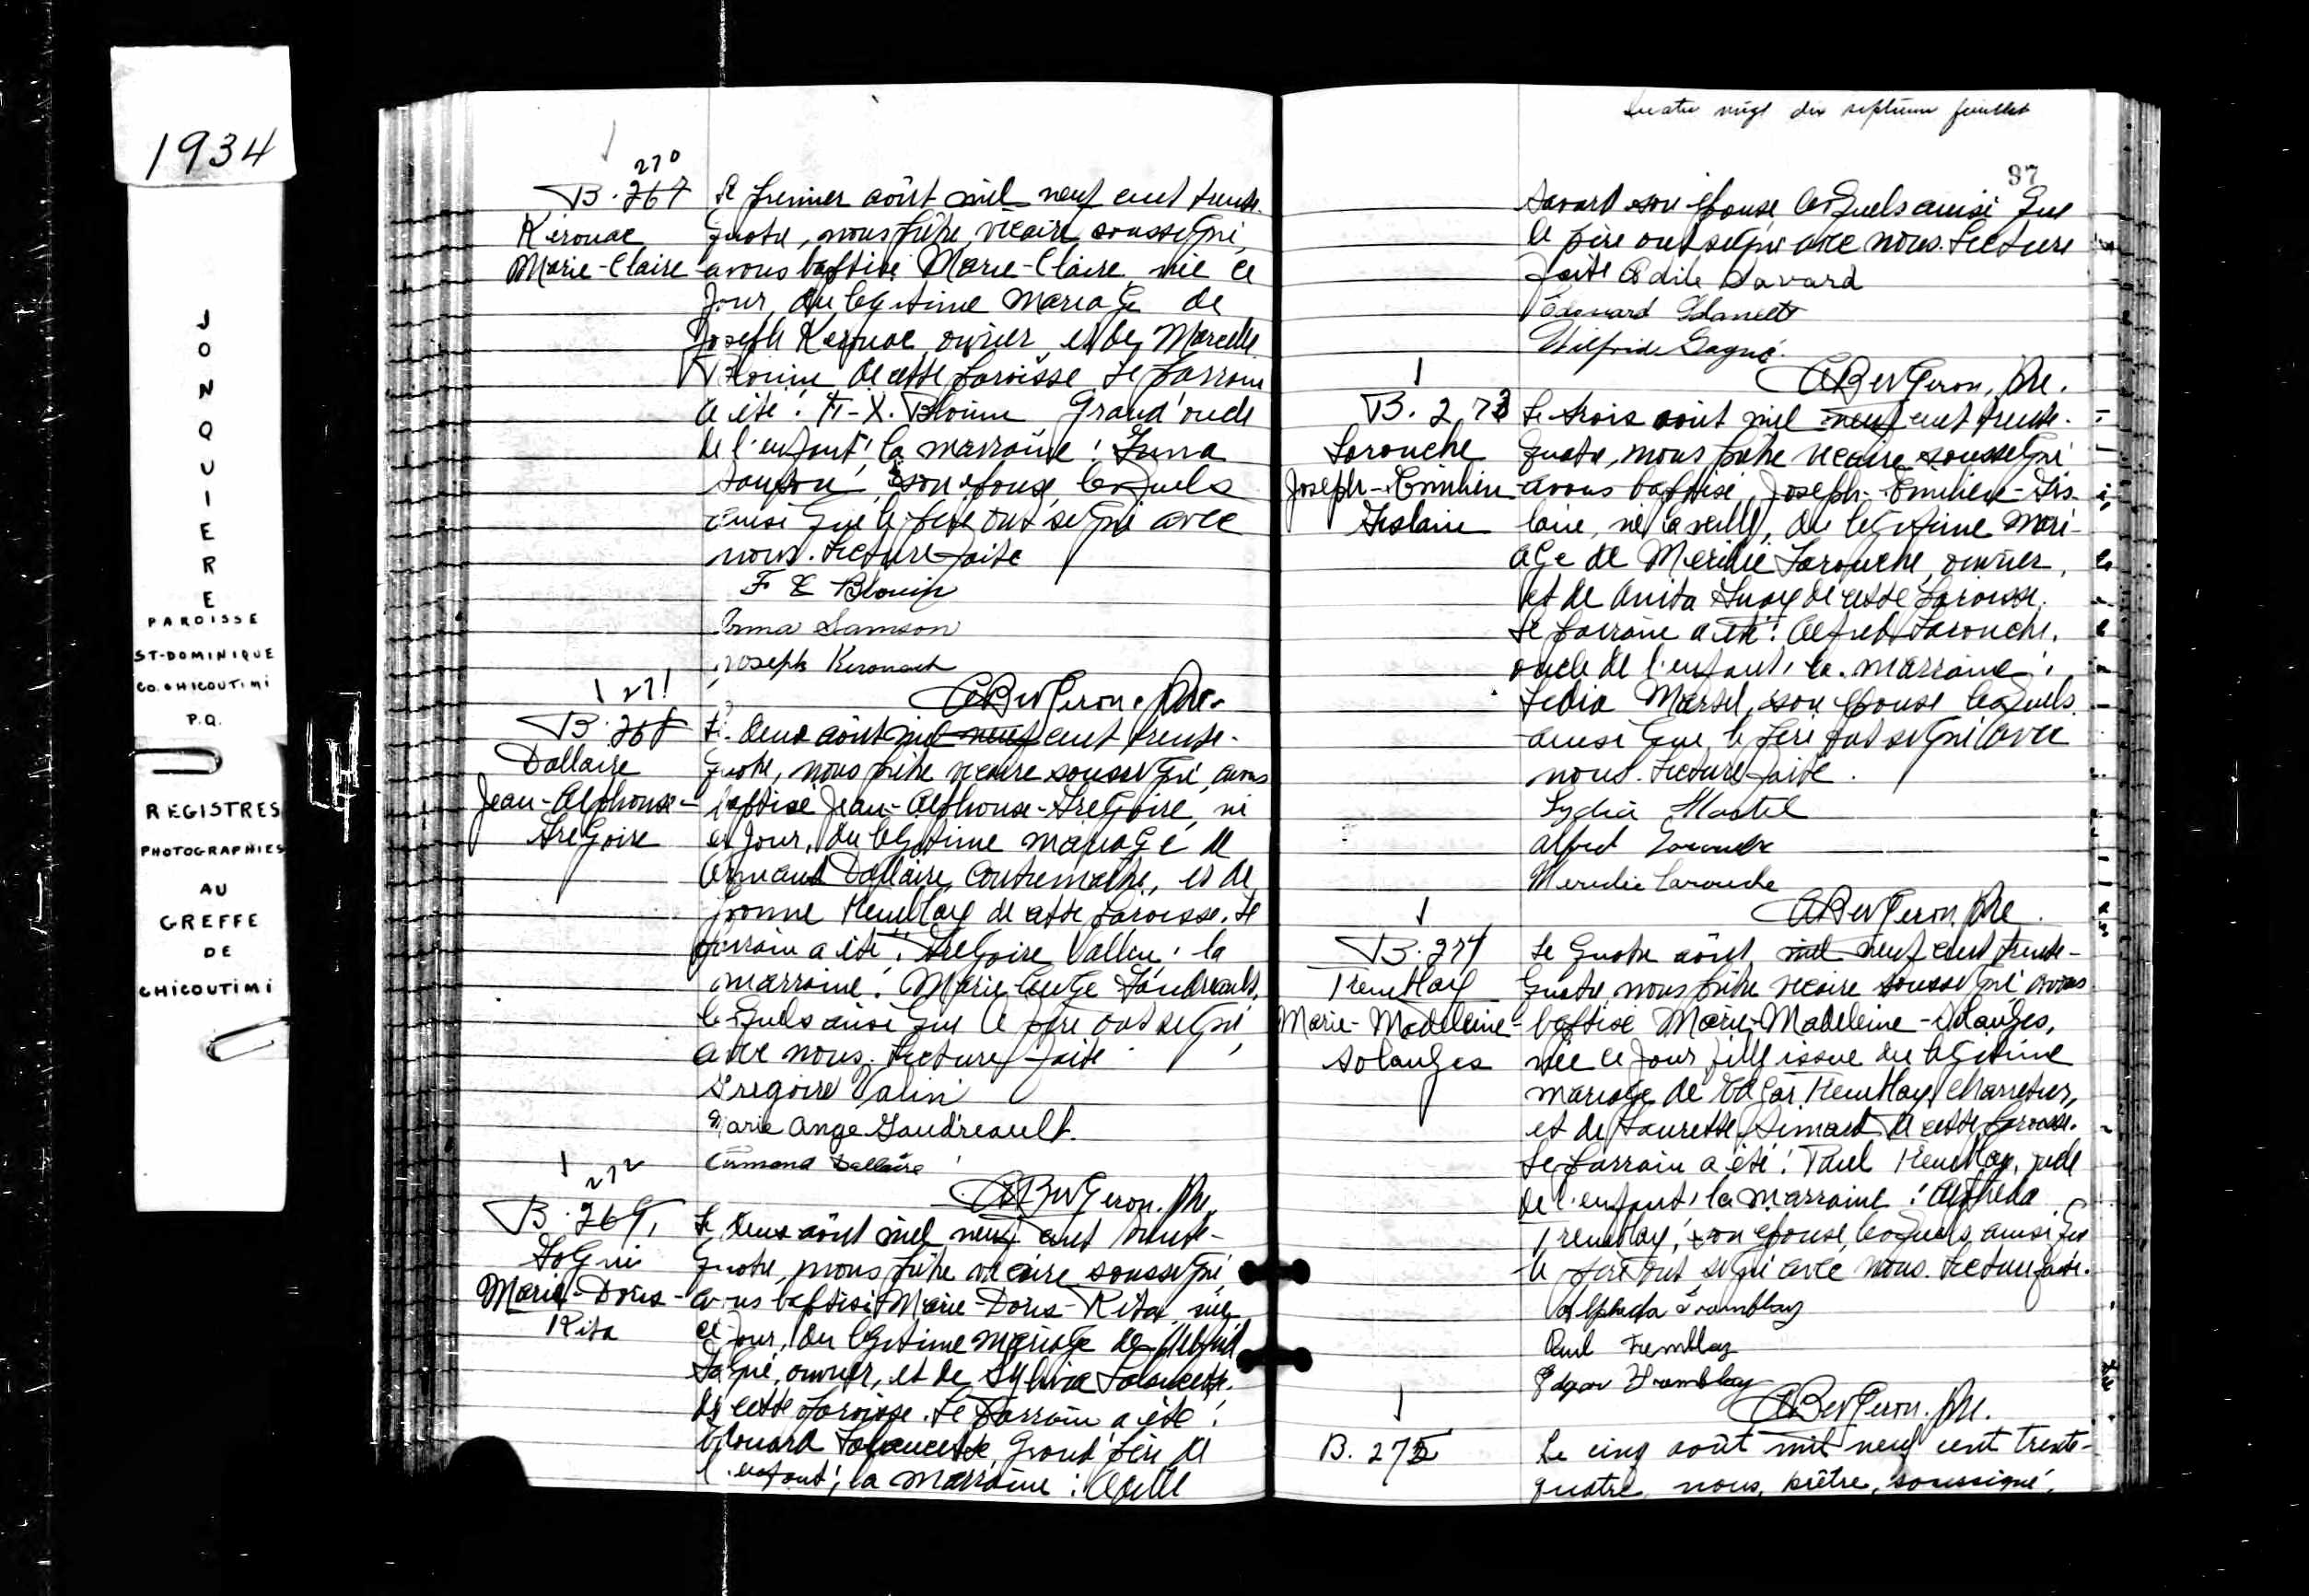 1934
JONQUIERE
PAROISSE
ST-DOMINIQUE
CO. CHICOUTIMI
P.Q.
REGISTRES
PHOTOGRAPHIES
AU
GREFFE
DE
CHICOUTIMI
270
B. 267
Kérouac
Marie-Claire
Le premier août mil neuf cent trente-
quatre, nous prêtre vicaire soussigné,
avons baptisé Marie-Claire née ce
jour, du légitime mariage de
Joseph Kérouac ouvrier et de Marcelle
Blouin de cette paroisse. Le parrain
a été: F-X. Blouin Grand'oncle
de l'enfant; la marraine: Irma
Samson, son épouse, lesquels
ainsi que le père ont signé avec
nous. Lecture faite
F X Blouin
Irma Samson
Joseph Kerouack
A Bergeron, Ptre.
271
B. 268
Dallaire
Jean-Alphonse-
Grégoire
Le deux août mil neuf cent trente-
quatre, nous prêtre vicaire soussigné, avons
baptisé Jean-Alphonse-Grégoire, né
ce jour, du légitime mariage de
Armand Dallaire, contremaître, et de
Yvonne Tremblay de cette paroisse. Le
parrain a été: Grégoire Vallin; la
marraine: Marie-Ange Gaudreault,
lesquels ainsi que le père ont signé
avec nous. Lecture faite
Gregoire Valin
Marie Ange Gaudreault.
Armand Dallaire
A Bergeron, Ptre.
272
B. 269
Gagné
Marie-Doris-
Rita
Le deux août mil neuf cent trente-
quatre, nous prêtre vicaire soussigné,
avons baptisé Marie-Doris-Rita, née
ce jour, du légitime mariage de Wilfrid
Gagné, ouvrier, et de Sylvia
de cette paroisse. Le parrain a été:
Edouard Grand père de
l'enfant; la marraine: Odile
Quatre vingt dix septième feuillet
97
Savard son épouse lesquels ainsi que
le père ont signé avec nous. Lecture
faite Odile Savard
Edouard
Wilfrid Gagné.
A Bergeron, Ptre.
B. 273
Larouche
Joseph-Emilien
Gislain
Le trois août mil neuf cent trente-
quatre, nous prêtre vicaire soussigné
avons baptisé, Joseph-Emilien-Gis-
lain, né la veille, du légitime mari-
age de Méridié Larouche, ouvrier,
et de Anita Guay de cette paroisse.
Le parrain a été: Alfred Larouche,
oncle de l'enfant; la marraine:
Lédia Martel, son épouse lesquels
ainsi que le père ont signé avec
nous. Lecture faite.
Lydia Martel
Alfred Larouche
Meridié Larouche
A Bergeron, Ptre.
B. 274
Tremblay
Marie-Madeleine-
Solanges
Le quatre août mil neuf cent trente-
quatre, nous prêtre vicaire soussigné avons
baptisé Marie-Madeleine-Solanges,
née ce jour, fille issue du légitime
mariage de Edgar Tremblay charretier,
et de Laurette Simard de cette paroisse.
Le parrain a été: Paul Tremblay, oncle
de l'enfant; la marraine: Alphéda
Tremblay, son épouse, lesquels ainsi que
le père ont signé avec nous. Lecture faite.
Alpheda Tremblay
Paul Tremblay
Edgar Tremblay
A Bergeron, Ptre.
B. 275
Le cinq août mil neuf cent trente-
quatre, nous, prêtre, soussigné,